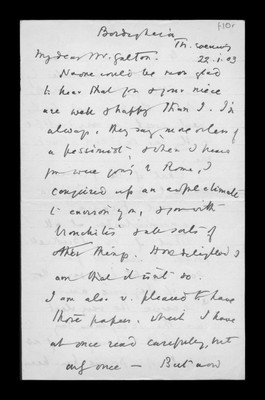 f10r
Bordighera
Th. evening
22.i.03
My dear Mr. Galton.
No one could be more glad
to hear that you & your niece
are well & happy than I. I'm
always, they say, more or less of
a pessimist, & when I hear
you were going to Rome, I
conjured up an awful climate
to environ you, & you with
bronchitis & all sorts of
other things. How delighted I
am that it isn't so.
I am also v. pleased to have
those papers, which I have
at once read carefully, but
only once — But now